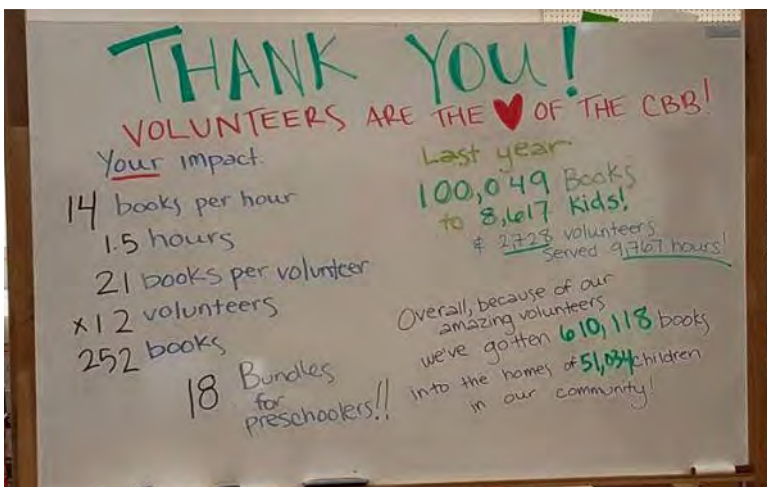 THANK YOU!
VOLUNTEERS ARE THE ♥ OF THE CBB!
Your impact.
14 books per hour
1.5 hours
21 books per volunteer
x12 volunteers
252 books
18 Bundles
for
preschoolers!!
Last year
100,049 Books
to 8,617 Kids!
& 2,728 volunteers
served 9,767 hours!
Overall, because of our
amazing volunteers
we've gotten 610,118 books
into the homes of 51,034 children
in our community!